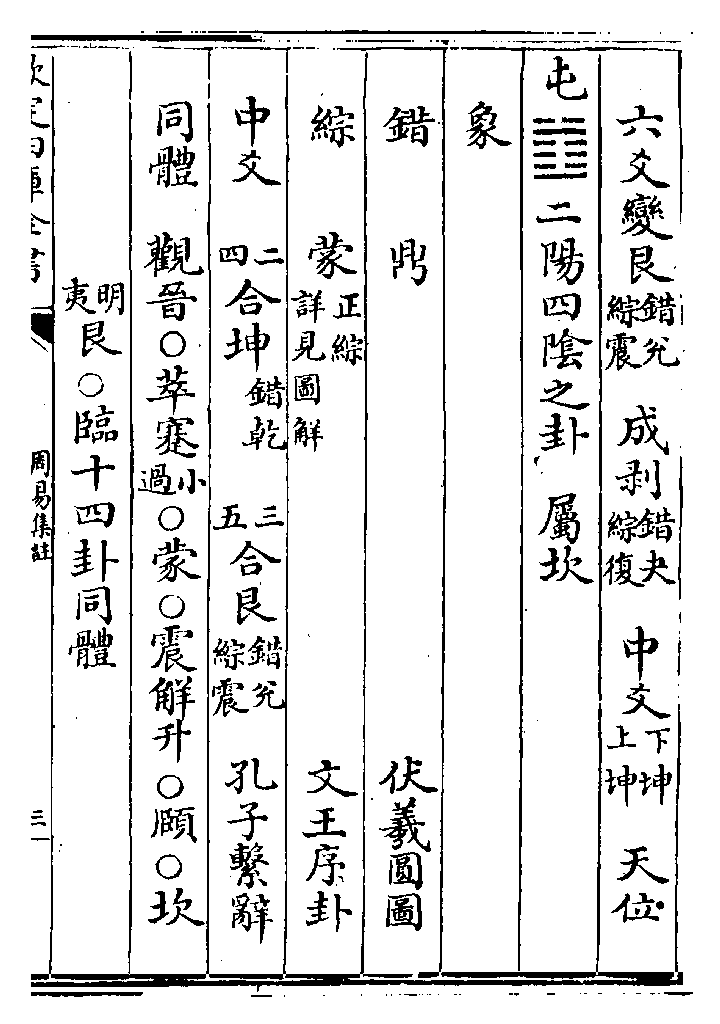 六爻變艮錯兌綜震　成剥錯夬綜復　中爻下坤上坤　天位
屯䷂二陽四陰之卦　屬坎
象
錯　鼎　伏羲圓圖
綜　蒙正綜詳見圖解　文王序卦
中爻　二四合坤錯乾　三五合艮錯兌綜震　孔子繫辭
同體　觀晉○萃蹇小過○蒙○震解升○頤○坎
明夷艮○臨十四卦同體
欽定四庫全書
周易集註
三